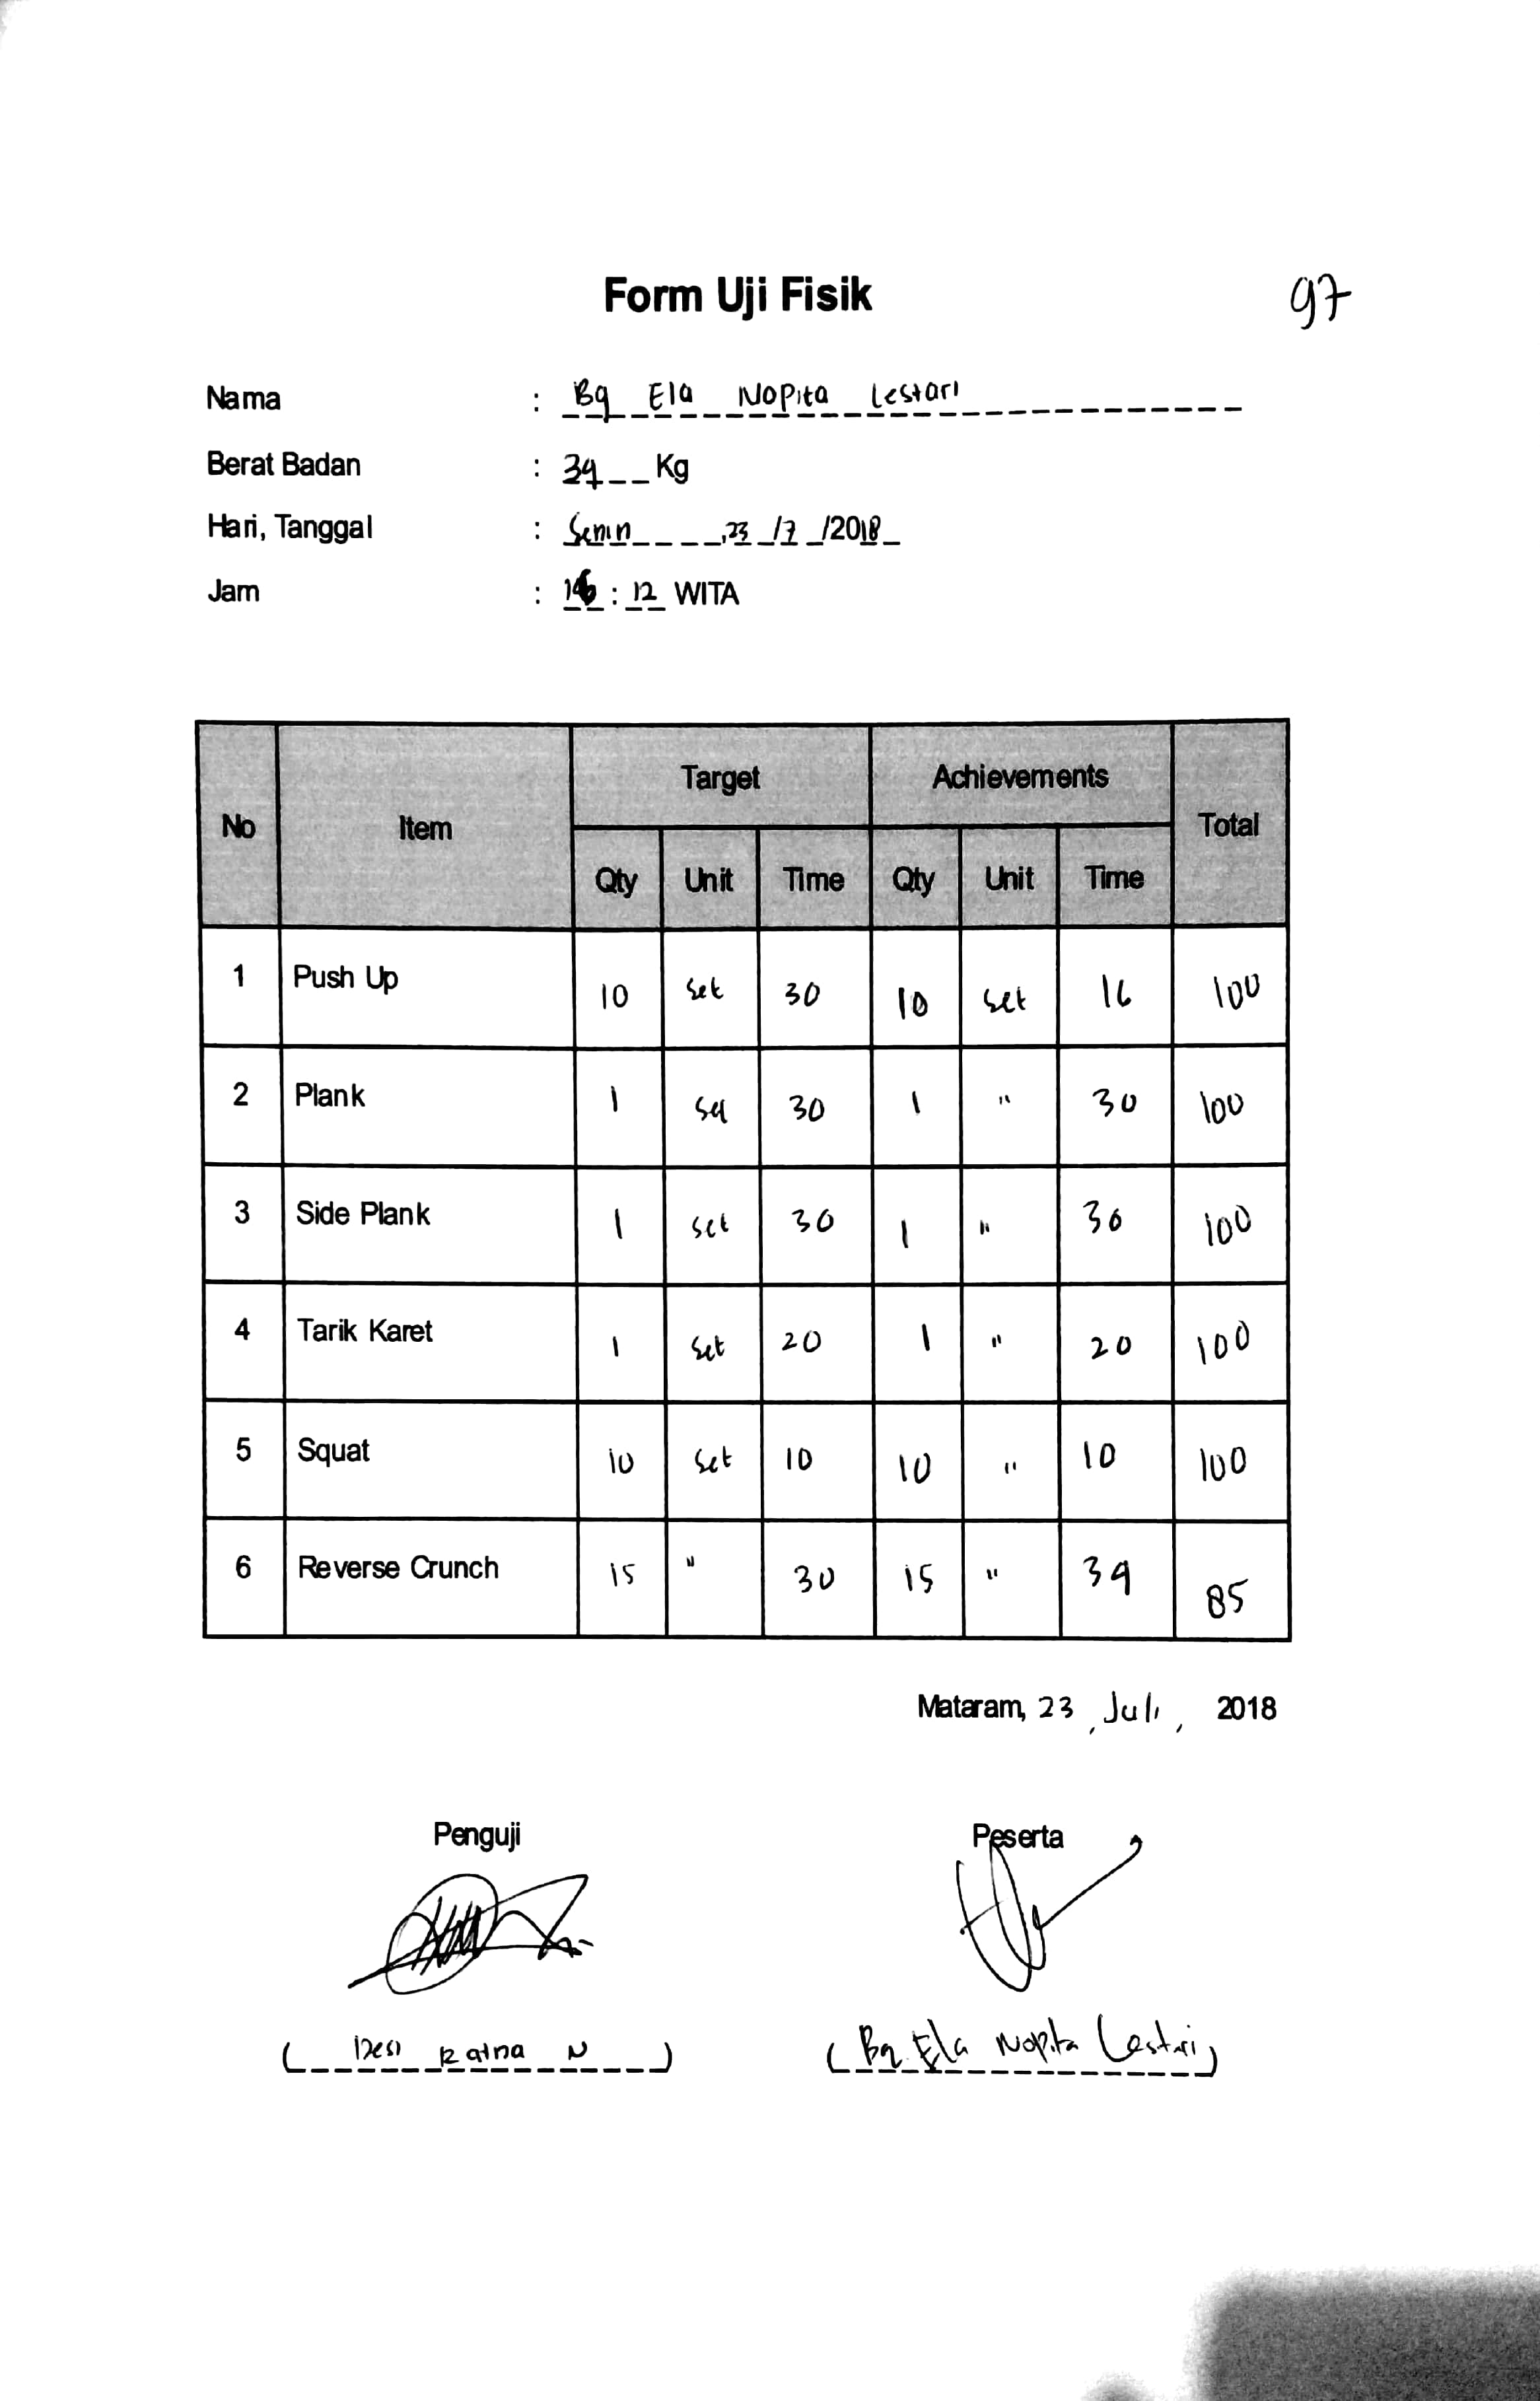 Form Uji Fisik 97
Nama : Bq Ela Nopita Lestari
Berat Badan : 39 Kg
Hari, Tanggal : Senin, 23 /7 /2018
Jam : : 12 WITA
No Item Target Achievements Total
Qty Unit Time Qty Unit Time
1 Push Up 10 Set 30 10 Set 16 100
2 Plank 1 Set 30 1 " 30 100
3 Side Plank 1 Set 30 1 " 30 100
4 Tarik Karet 1 Set 20 1 " 20 100
5 Squat 10 Set 10 10 " 10 100
6 Reverse Crunch 15 " 30 15 " 39 85
Mataram, 23, Juli, 2018
Penguji Peserta
( Desi Ratna N ) ( Bq Ela Nopita Lestari )